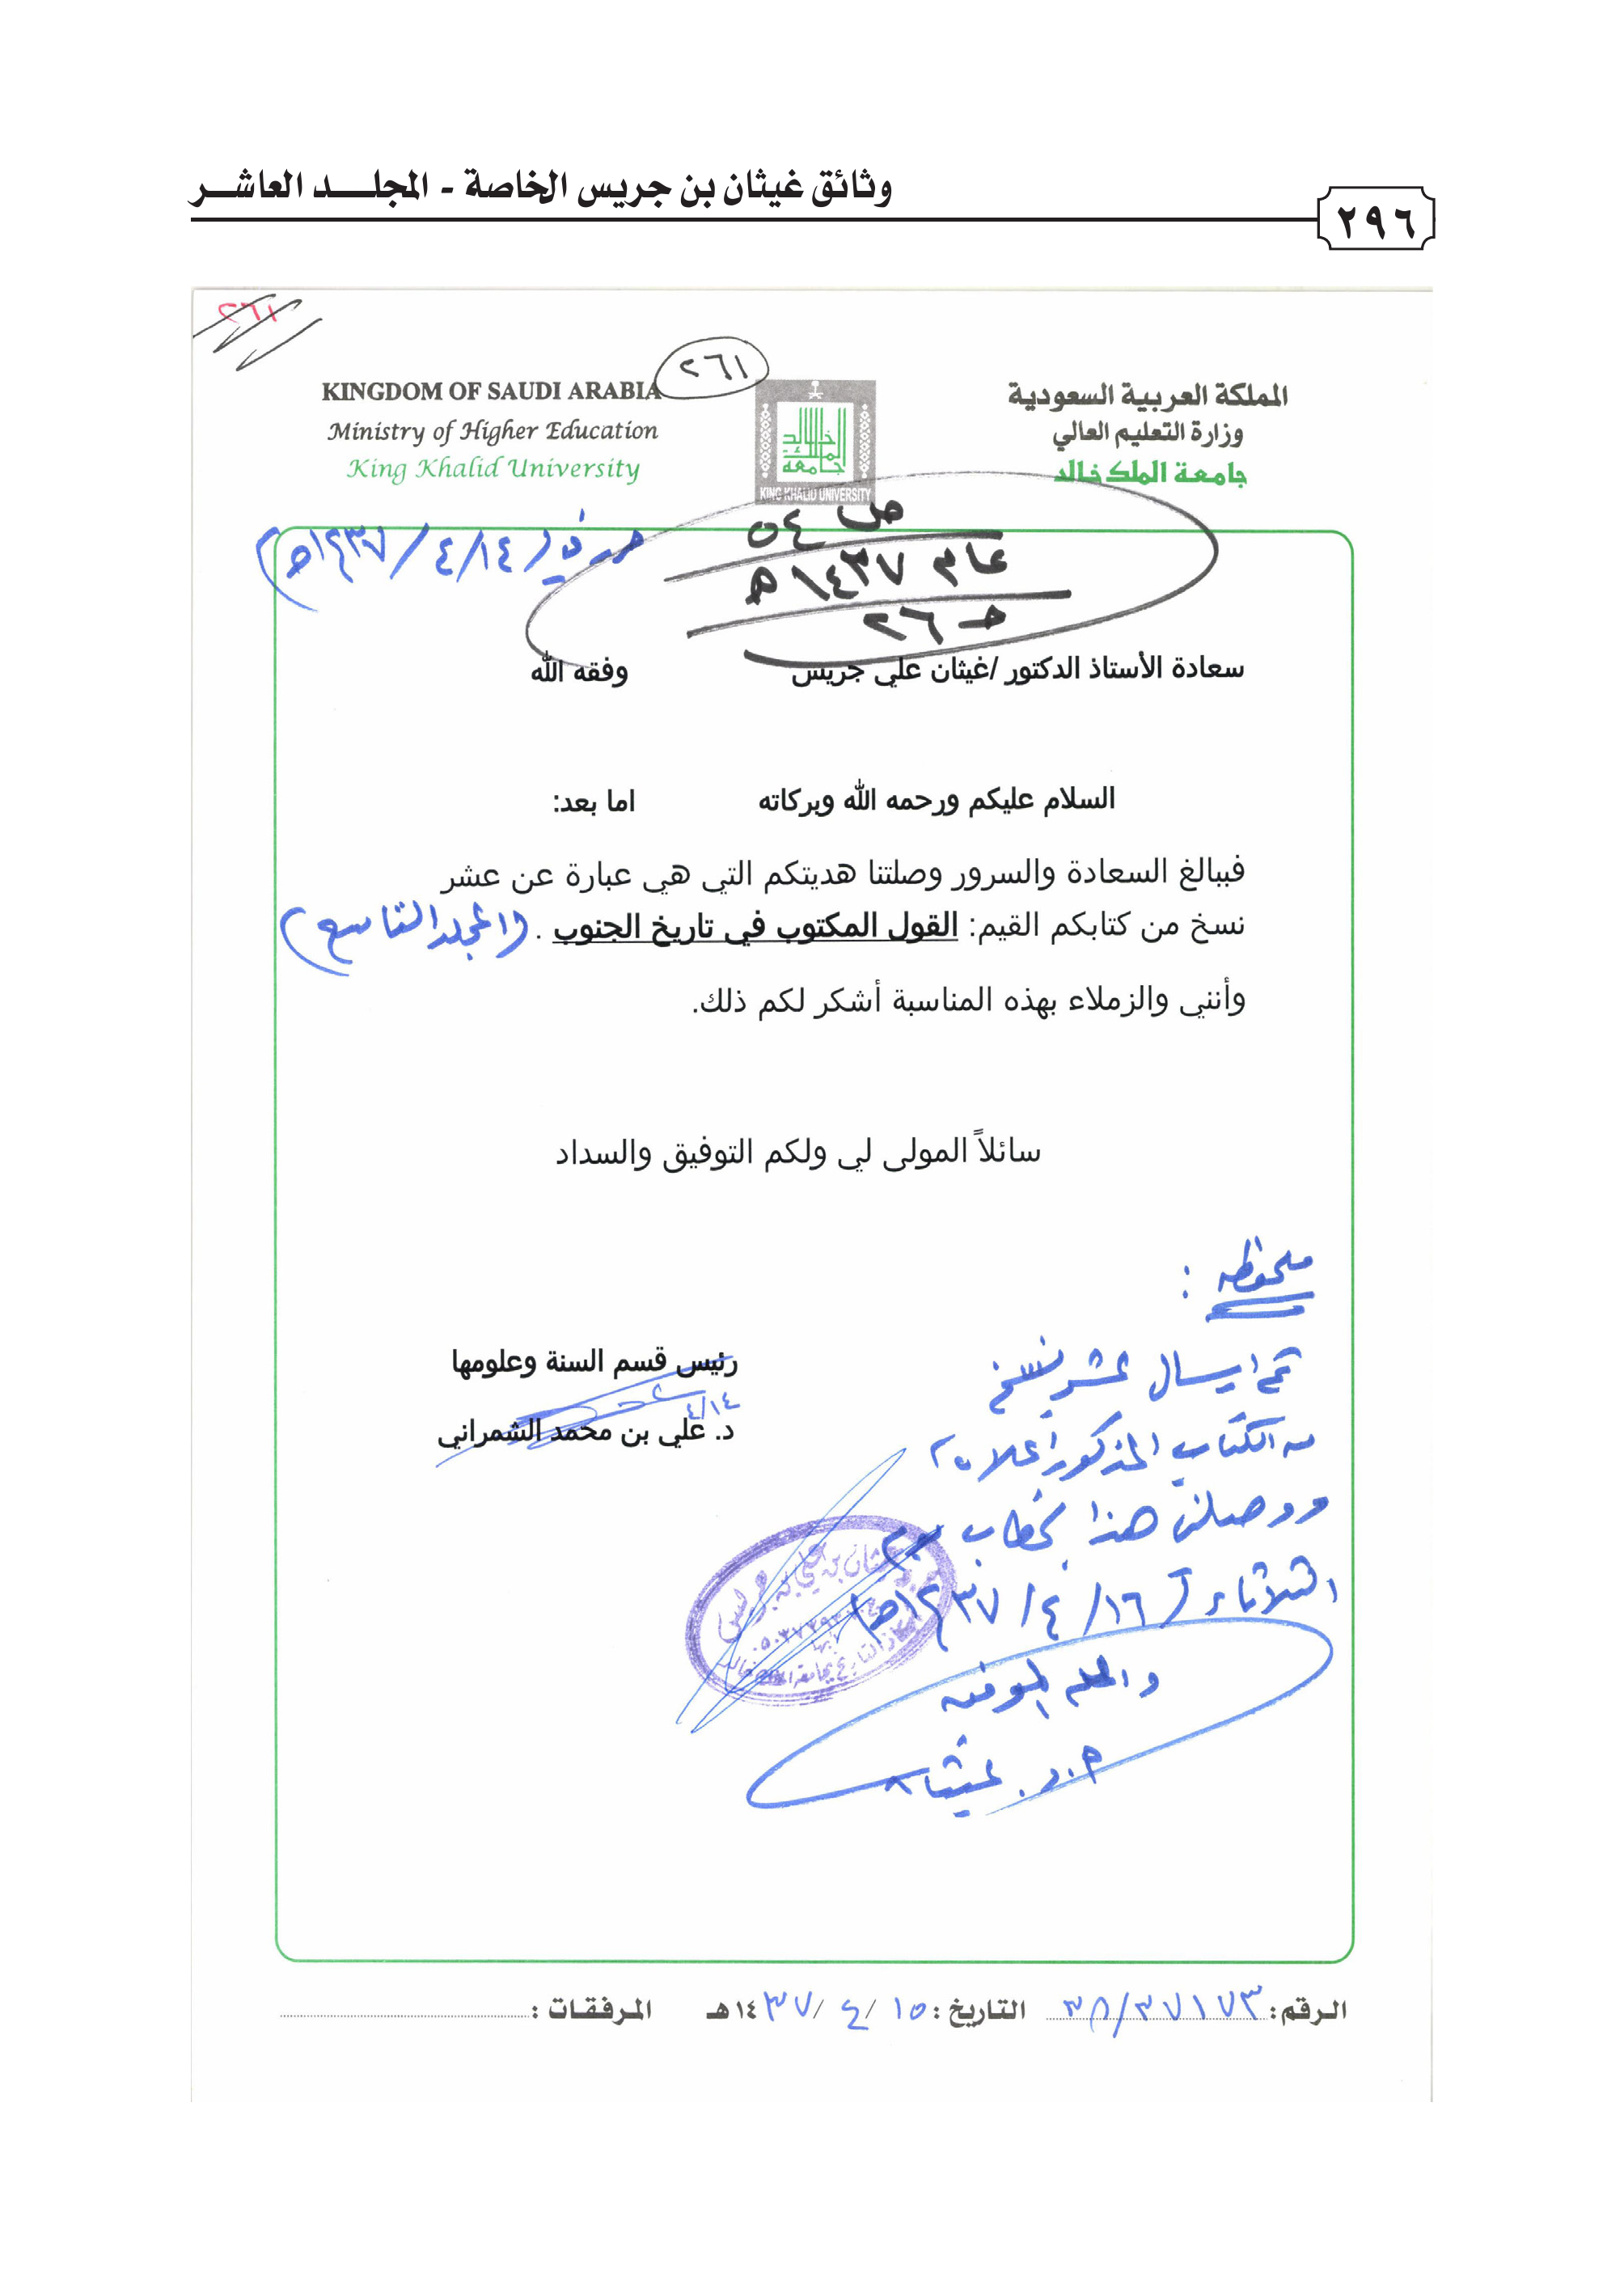 وثائق غيثان بن جريس الخاصة - المجلـــد العاشـــر
٢٩٦
٢٦١
٢٦١
KINGDOM OF SAUDI ARABIA
Ministry of Higher Education
King Khalid University
المملكة العربية السعودية
وزارة التعليم العالي
جامعة الملك خالد
جامعة الملك خالد
KING KHALID UNIVERSITY
ص ٥٤
عام ١٤٣٧هـ
هـ ٢٦
حرر في (١٤/٤/١٤٣٧هـ)
سعادة الأستاذ الدكتور /غيثان علي جريس وفقه الله
السلام عليكم ورحمه الله وبركاته اما بعد:
فببالغ السعادة والسرور وصلتنا هديتكم التي هي عبارة عن عشر
نسخ من كتابكم القيم: القول المكتوب في تاريخ الجنوب . (المجلد التاسع)
وأنني والزملاء بهذه المناسبة أشكر لكم ذلك.
سائلاً المولى لي ولكم التوفيق والسداد
رئيس قسم السنة وعلومها
٤/١٤
د. علي بن محمد الشمراني
ملحوظه :
تم ارسال عشر نسخ
من الكتاب المذكور أعلاه
ووصلني هذا الخطاب يوم
الثلاثاء (١٦/٤/١٤٣٧هـ)
والله الموفق
أ.د. غيثان
غيثان بن علي بن جريس
أستاذ التاريخ بجامعة الملك خالد
أبها
الرقم: ٣٨/٣٧١٧٣ التاريخ: ١٥/ ٤ /١٤٣٧هـ المرفقات :